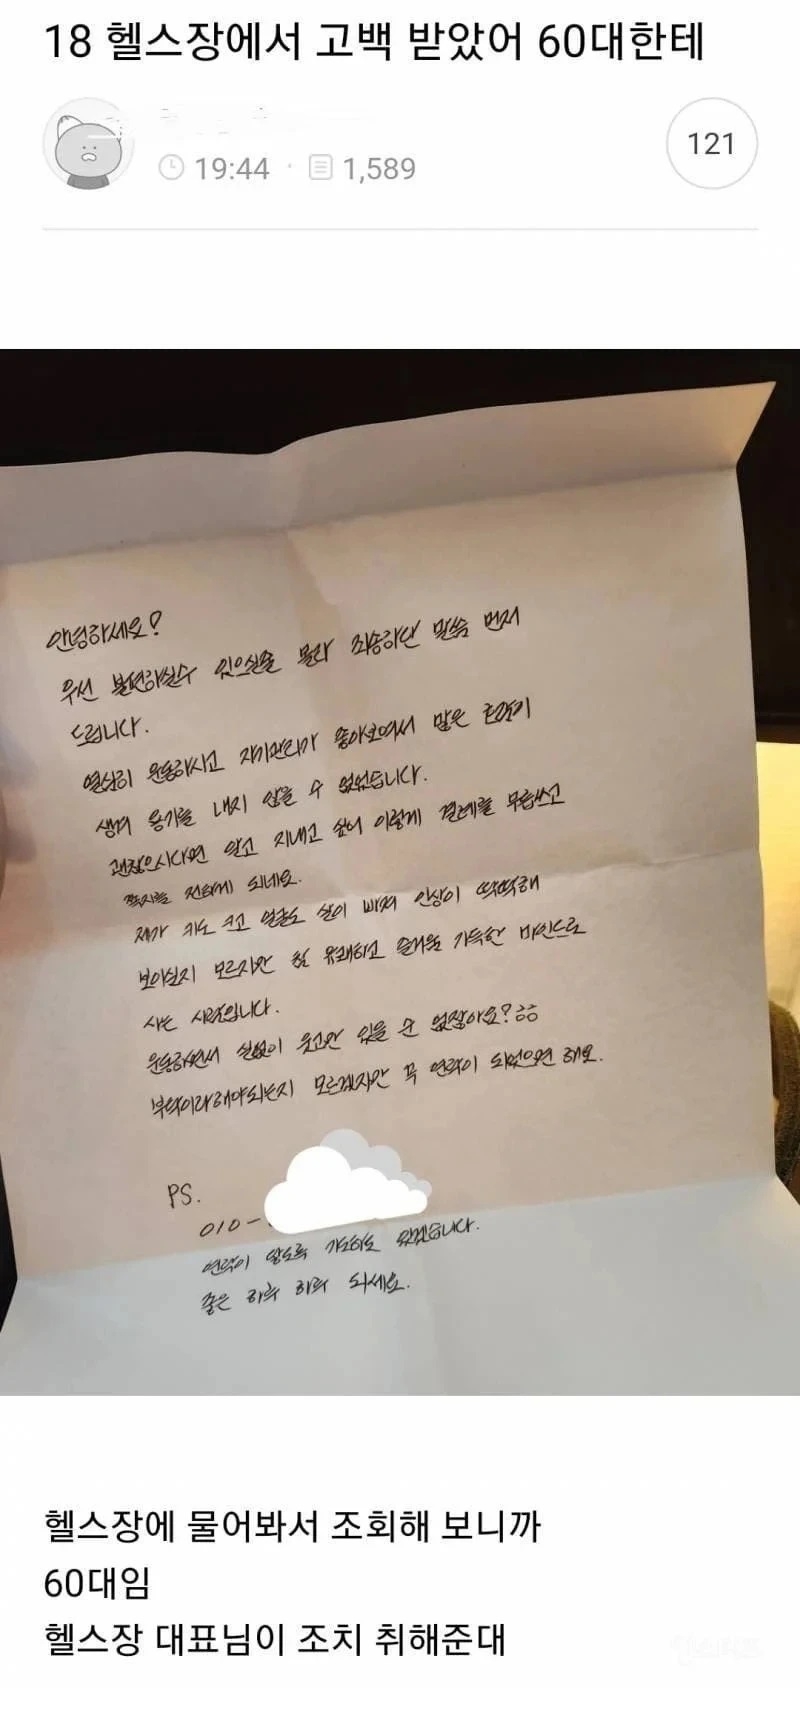 18 헬스장에서 고백 받았어 60대한테
19:44 · 1,589
121
안녕하세요?
우선 불편하실수 있으실줄 몰라 죄송하단 말씀 먼저
드립니다.
열심히 운동하시고 자기관리가 좋아보여서 많은 호감이
생겨 용기를 내지 않을 수 없었습니다.
괜찮으시다면 알고 지내고 싶어 이렇게 결례를 무릅쓰고
쪽지를 전하게 되네요.
제가 키도 크고 얼굴도 살이 빠져 인상이 딱딱해
보이실지 모르지만 참 유쾌하고 즐거움 가득한 마인드로
사는 사람입니다.
운동하면서 실없이 웃고만 있을 순 없잖아요?ㅎㅎ
부탁이라해야되는지 모르겠지만 꼭 연락이 되었으면 해요.
PS.
010-
연락이 왔음 기도하고 있겠습니다.
좋은 하루 하루 되세요.
헬스장에 물어봐서 조회해 보니까
60대임
헬스장 대표님이 조치 취해준대